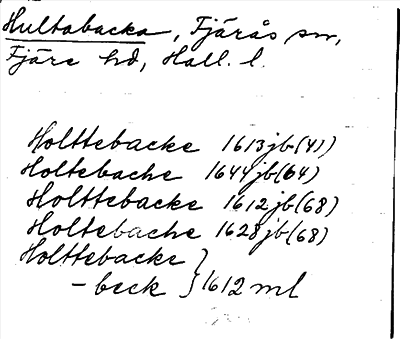 Hultabacka, Fjärås sn,
Fjäre hd, Hall. l.
Holttebacke 1613 jb (41)
Holtebache 1644 jb (64)
Holttebacke 1612 jb (68)
Holtebache 1628 jb (68)
Holttebacke } 1612 ml
- beck